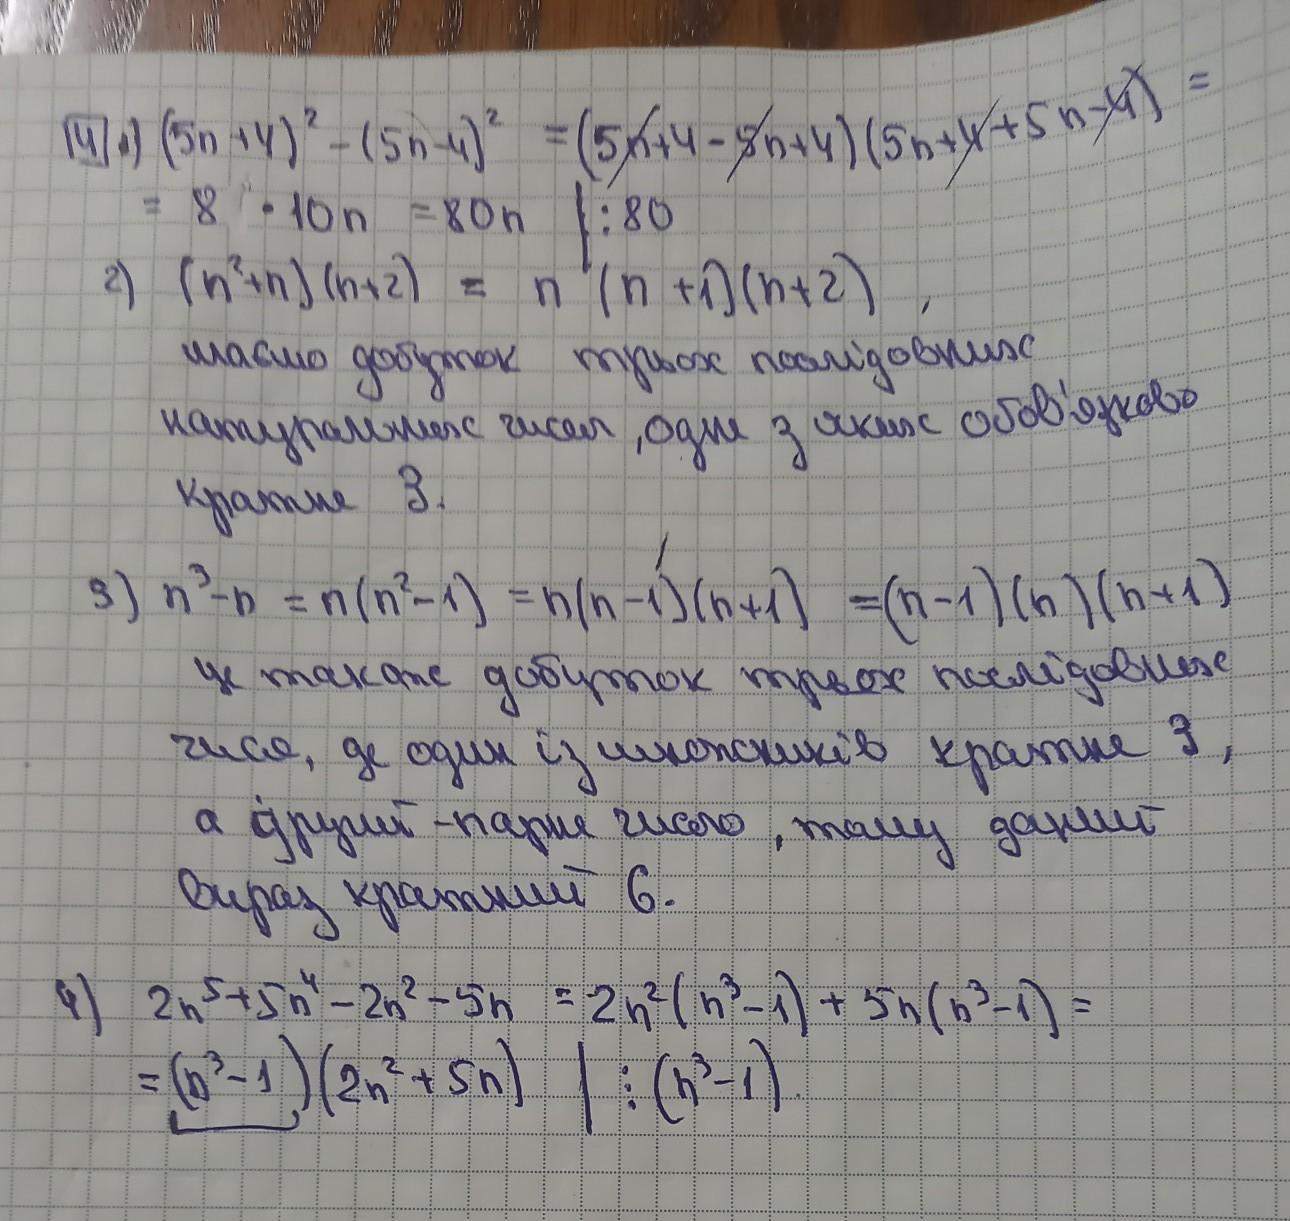 14 1) (5n+4)² - (5n-4)² = (5n+4-5n+4)(5n+4+5n-4) =
= 8 · 10n = 80n | : 80
2) (n²+n)(n+2) = n (n+1)(n+2) ,
маємо добуток трьох послідовних
натуральних чисел, одне з яких обов'язково
кратне 3.
3) n³-n = n(n²-1) = n(n-1)(n+1) = (n-1)(n)(n+1)
це також добуток трьох послідовних
чисел, де один із множників кратне 3,
а другий - парне число, тому даний
вираз кратний 6.
4) 2n⁵+5n⁴-2n²-5n = 2n²(n³-1) + 5n(n³-1) =
= (n³-1)(2n²+5n) | ⋮ (n³-1).